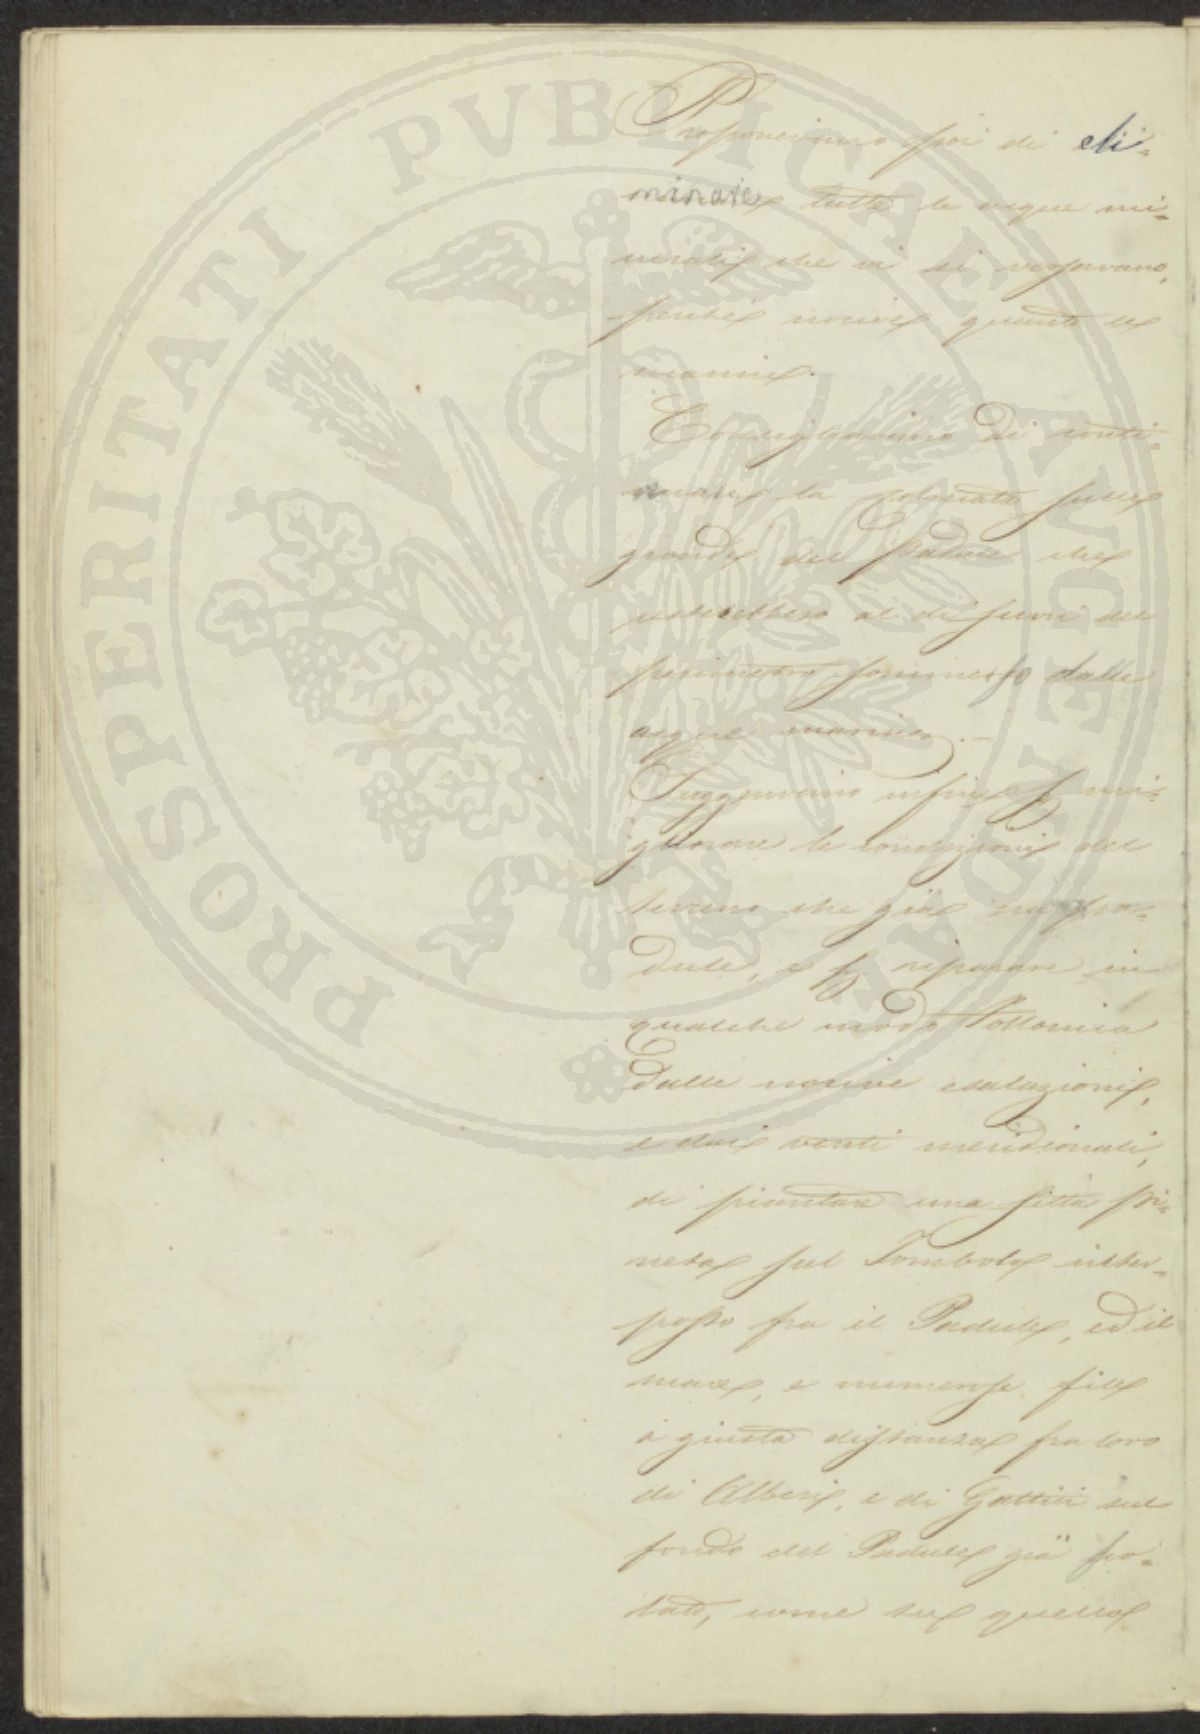 PROSPERITATI PVBLICAE AVGENDAE
Proponevimo poi di eli=
minare tutte le acque mi=
nerali che vi si versavano,
perché nocive quanto le
marine.
Consigliavimo di conti=
nuare la colmata sulle
gronde del Padule che
resterebbero al di fuori del
perimetro sommerso dalle
acque marine. -
Suggerivimo infine p mi=
gliorare le condizioni del
terreno che già fu pa=
dule, e p riparare in
qualche modo Follonica
dalle nocive esalazioni,
e dai venti meridionali,
di piantare una fitta pi=
neta sul Tombolo inter=
posto fra il Padule, ed il
mare, e numerose file
a giusta distanza fra loro
di Alberi, e di Gattici sul
fondo del Padule già
come su quella